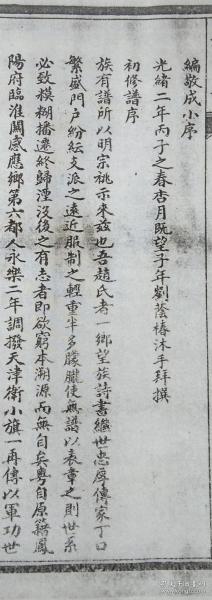 編敬成小序
光緒二年丙子之春杏月既望子年劉蔭椿沐手拜撰
初修譜序
族有譜所以明宗祧示來茲也吾趙氏者一鄉望族詩書繼世忠厚傳家丁口
繁盛門戶紛紜支派之遠近服制之輕重半多朦朧使無譜以表章之則世系
必致模糊播遷終歸湮沒後之有志者即欲窮本溯源而無自矣粵自原籍鳳
陽府臨淮關感應鄉第六都人永樂二年調撥天津衛小旗一再傳以軍功世